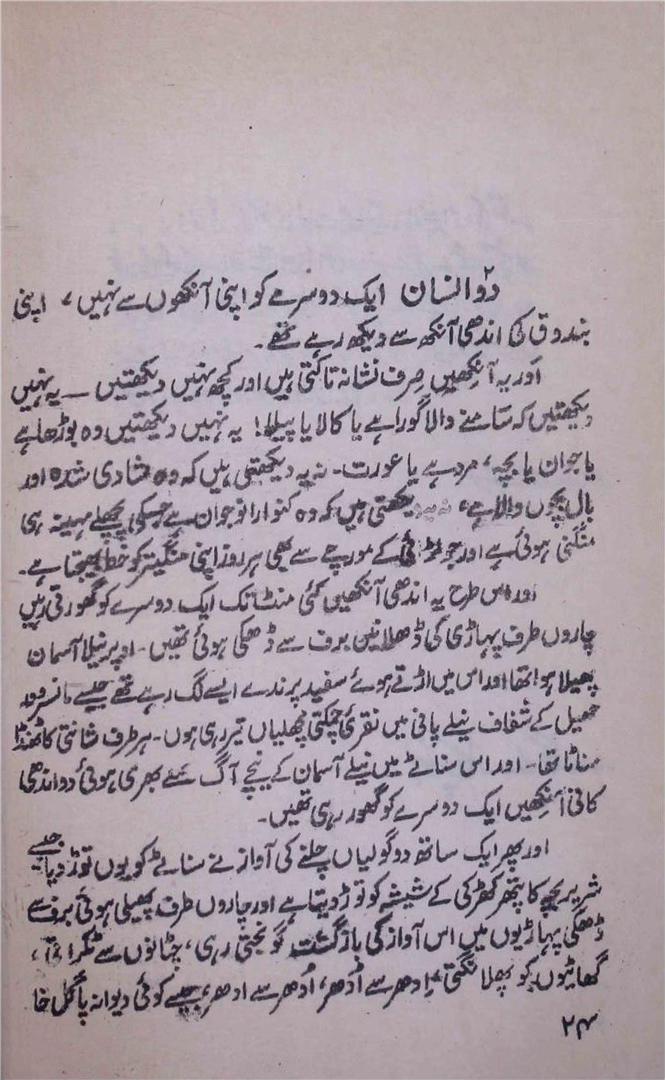 دو انسان ایک دوسرے کو اپنی آنکھوں سے نہیں، اپنی
بندوق کی اندھی آنکھ سے دیکھ رہے تھے۔
اور یہ آنکھیں صرف نشانہ تاکتی ہیں اور کچھ نہیں دیکھتیں — یہ نہیں
دیکھتیں کہ سامنے والا گورا ہے یا کالا یا پیلا! یہ نہیں دیکھتیں وہ بوڑھا ہے
یا جوان یا بچہ، مرد ہے یا عورت۔ نہ یہ دیکھتی ہیں کہ وہ شادی شدہ اور
بال بچوں والا ہے، نہ یہ دیکھتی ہیں کہ وہ کنوارا نوجوان ہے جسکی پچھلے مہینہ ہی
منگنی ہوئی ہے اور جو لڑائی کے مورچے سے بھی ہر روز اپنی منگیتر کو خط بھیجتا ہے۔
اور اس طرح یہ اندھی آنکھیں کئی منٹ تک ایک دوسرے کو گھورتی رہیں
چاروں طرف پہاڑی کی ڈھلانیں برف سے ڈھکی ہوئی تھیں۔ اوپر نیلا آسمان
پھیلا ہوا تھا اور اس میں اڑتے ہوئے سفید پرندے ایسے لگ رہے تھے جیسے مانسرور
جھیل کے شفاف نیلے پانی میں نقرئی چمکتی مچھلیاں تیر رہی ہوں۔ ہر طرف شانتی کا ٹھنڈا
سناٹا تھا۔ اور اس سناٹے میں نیلے آسمان کے نیچے آگ سے بھری ہوئی دو اندھی
کانی آنکھیں ایک دوسرے کو گھور رہی تھیں۔
اور پھر ایک ساتھ دو گولیاں چلنے کی آواز نے سناٹے کو یوں توڑ دیا جیسے
شریر بچے کا پتھر کھڑکی کے شیشہ کو توڑ دیتا ہے اور چاروں طرف پھیلی ہوئی برف سے
ڈھکی پہاڑیوں میں اس آواز کی بازگشت گونجتی رہی، چٹانوں سے ٹکراتی،
گھاٹیوں کو پھلانگتی ادھر سے اُدھر، اُدھر سے ادھر، جیسے کوئی دیوانہ پاگل خا
۲۴